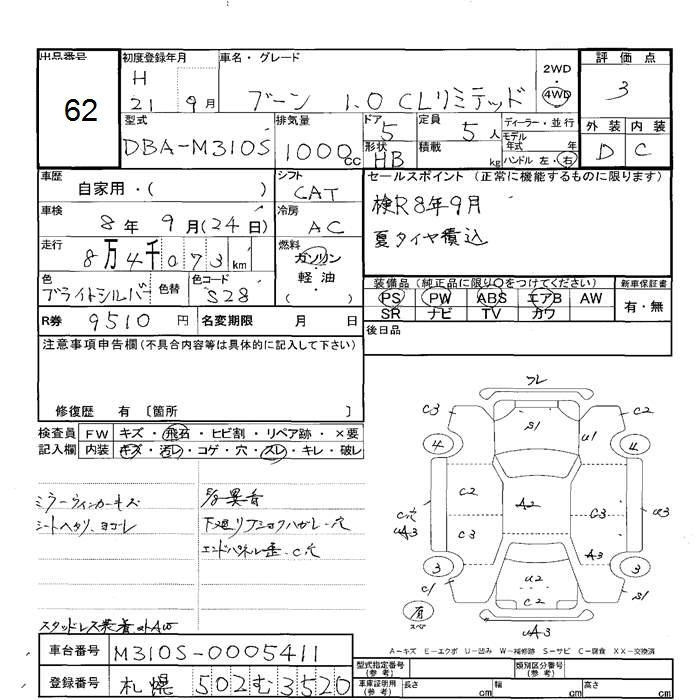 出品番号
62
初度登録年月
H
21 9月
車名・グレード
ブーン 1.0 CLリミテッド
2WD
4WD
評価点
3
外装 内装
D C
型式
DBA-M310S
排気量
1000cc
ドア
5
形状
HB
定員
5人
積載
kg
ディーラー・並行
モデル
年式 年
ハンドル 左・右
車歴
自家用・( )
シフト
CAT
セールスポイント (正常に機能するものに限ります)
検R8年9月
夏タイヤ積込
車検
8年 9月(24日)
冷房
AC
走行
8万4千073km
燃料
ガソリン
軽油
( )
色
ブライトシルバー
色替
色コード
S28
装備品 (純正品に限り○をつけてください)
PS PW ABS エアB AW
SR ナビ TV カワ
新車保証書
有・無
R券 9510円
名変期限 月 日
後日品
注意事項申告欄(不具合内容等は具体的に記入して下さい)
修復歴 有 〔箇所 〕
検査員
記入欄
FW キズ・飛石・ヒビ割・リペア跡・×要
内装 キズ・汚レ・コゲ・穴・スレ・キレ・破レ
ミラーウィンカーキズ
シートヘタリ、ヨゴレ
異音
下廻リフショクハガレ・穴
エンドパネル歪・C穴
スタッドレス装着
フレ
S1
C3
C2
4
U1
4
C2
A2
C3
C穴
UA3
U3
C3
A3
3
3
C1
U2
C2
S1
有
スペア
UA3
A－キズ E－エクボ U－凹み W－補修跡 S－サビ C－腐食 XX－交換済
車台番号 M310S-0005411
登録番号 札幌 502む3520
型式指定番号
(参考)
類別区分番号
(参考)
車庫証明用
(参考)
長さ cm 幅 cm 高さ cm